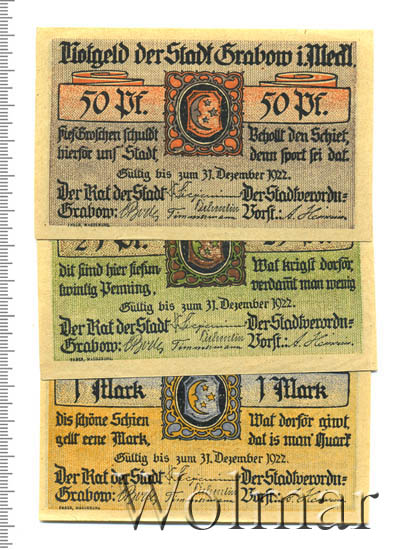 Notgeld der Stadt Grabow i. Meckl.
50 Pf. 50 Pf.
fief Groschen schuldt Beholl den Schief,
hierför uns' Stadt, denn sport sei dat.
Gültig bis zum 31. Dezember 1922.
Der Rat der Stadt Der Stadtverordn-
Grabow: Timmermann Vorst.:
FABER, MAGDEBURG
25 Pf. 25 Pf.
dit sind hier fiefun- Wat krigst dorför,
twintig Penning, verdamt man wenig
Gültig bis zum 31. Dezember 1922.
Der Rat der Stadt Der Stadtverordn-
Grabow: Timmermann Vorst.:
FABER, MAGDEBURG
1 Mark 1 Mark
dis schöne Schien Wat dorför giwt,
gellt eene Mark, dat is man Quark
Gültig bis zum 31. Dezember 1922.
Der Rat der Stadt Der Stadtverordn-
Grabow: Timmermann Vorst.:
FABER, MAGDEBURG
Wolmar